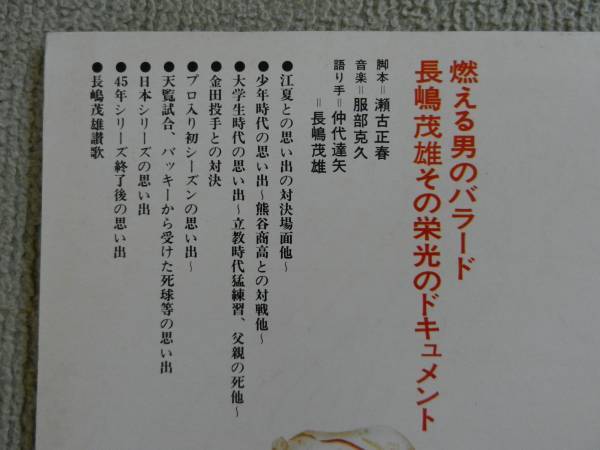 燃える男のバラード
長嶋茂雄その栄光のドキュメント
脚本＝瀬古正春
音楽＝服部克久
語り手＝仲代達矢
＝長嶋茂雄
●江夏との思い出の対決場面他～
●少年時代の思い出～熊谷商高との対戦他～
●大学生時代の思い出～立教時代猛練習、父親の死他～
●金田投手との対決
●プロ入り初シーズンの思い出～
●天覧試合、バッキーから受けた死球等の思い出
●日本シリーズの思い出
●45年シリーズ終了後の思い出
●長嶋茂雄讃歌